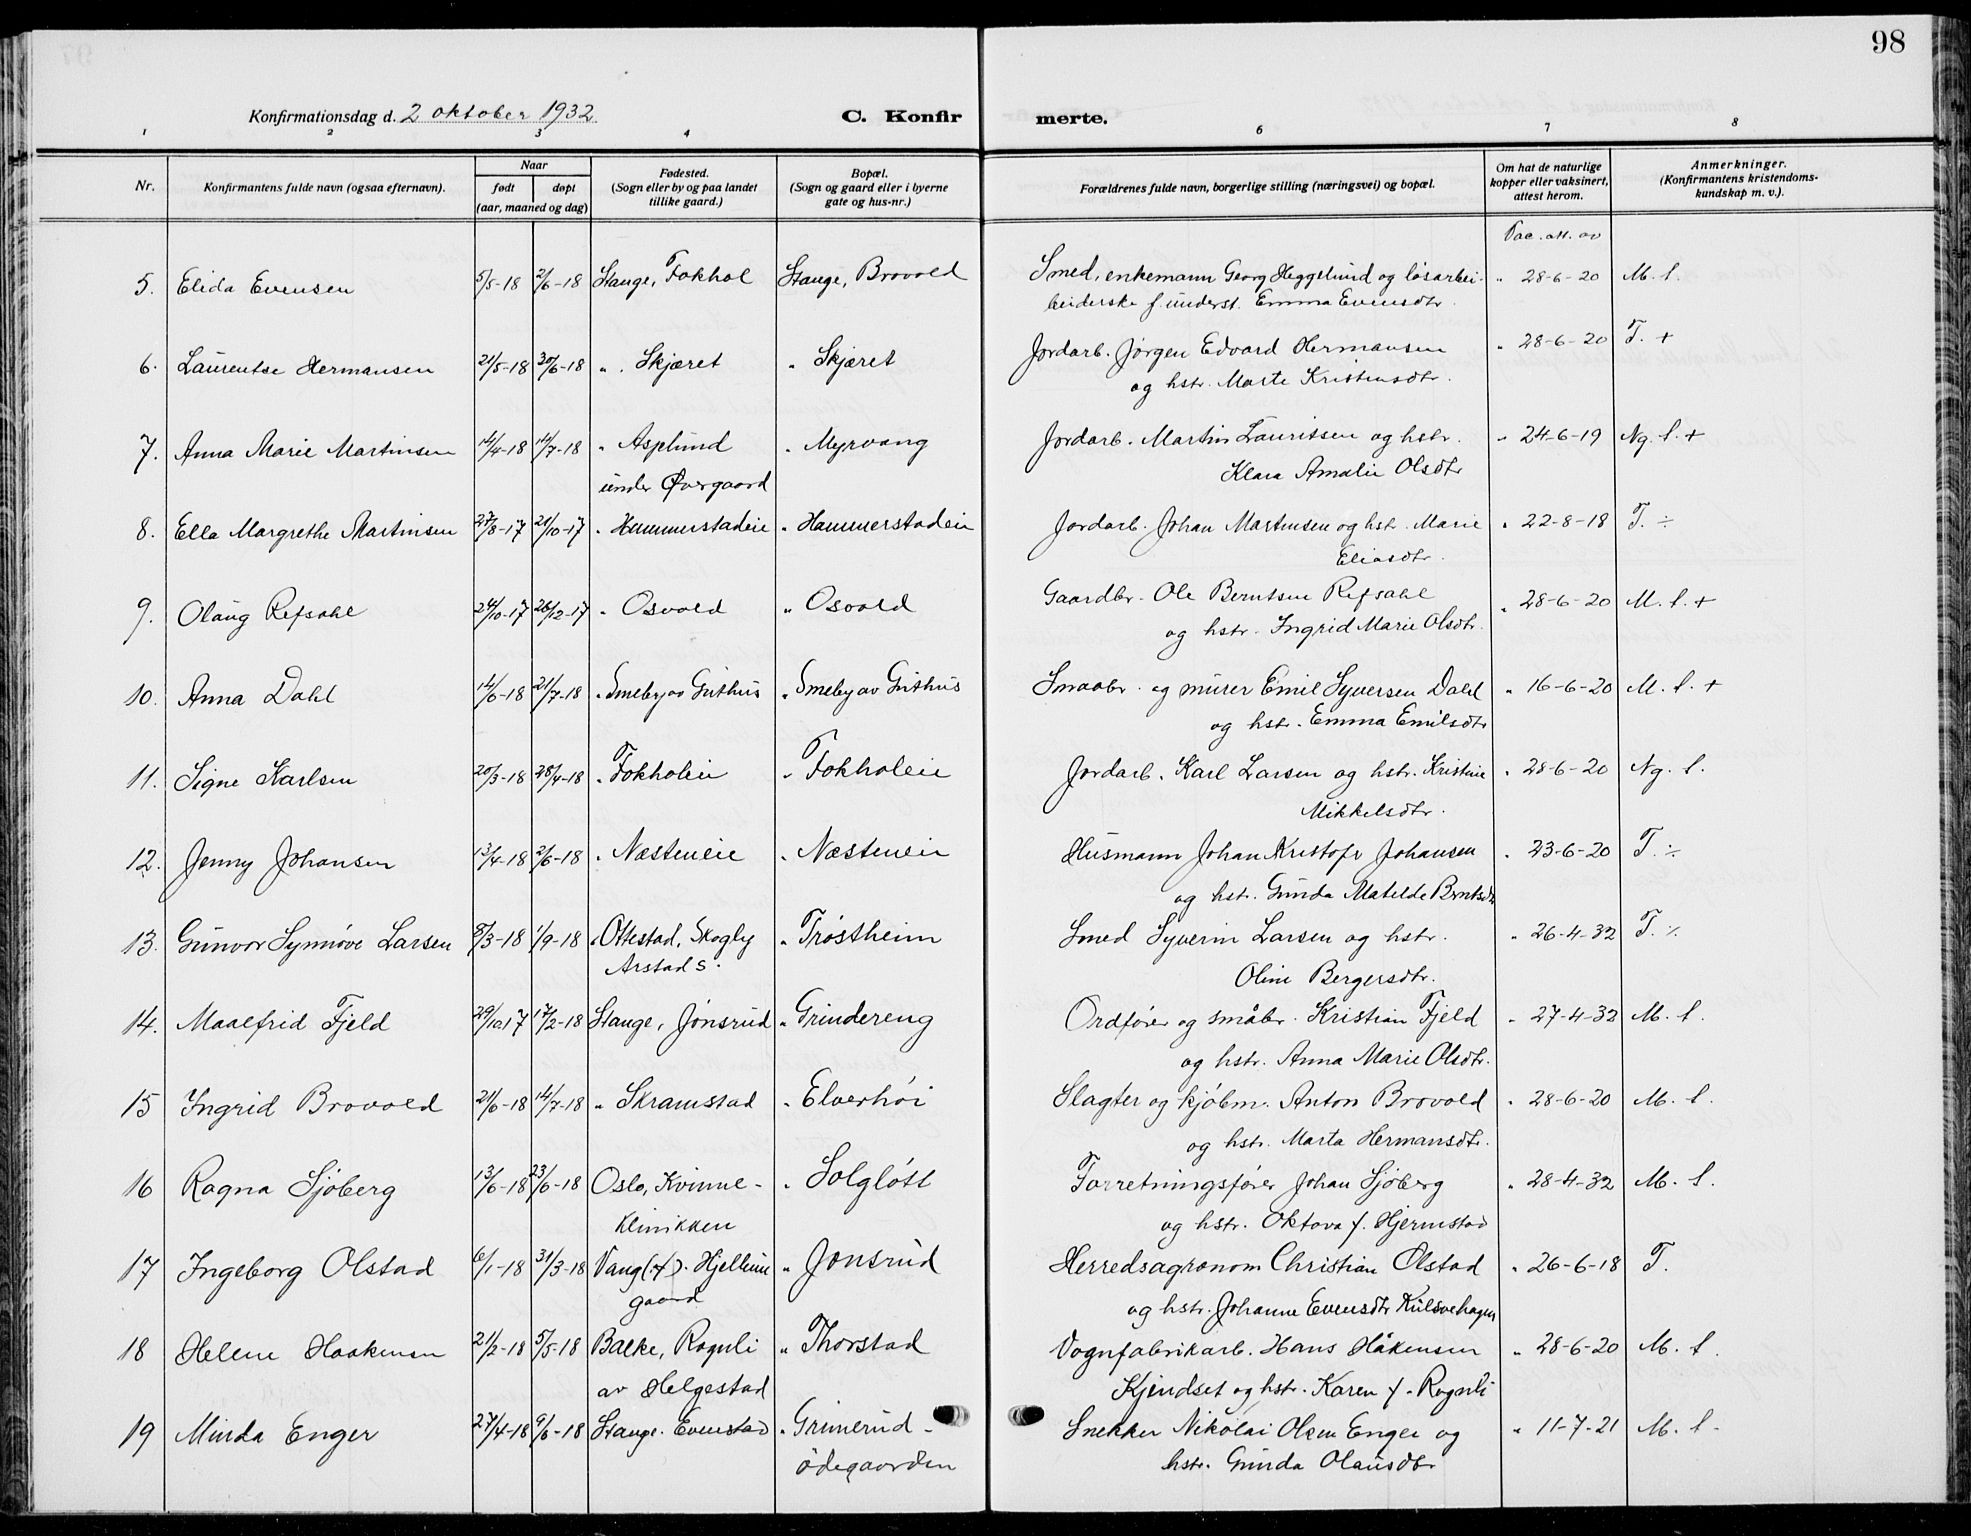 98
Konfirmationsdag d. 2 oktober 1932. C. Konfir merte.
1 2 3 4 6 7 8
Nr. Konfirmantens fulde navn (ogsaa efternavn). Naar født døpt (aar, maaned og dag) Fødested. (Sogn eller by og paa landet tillike gaard.) Bopæl. (Sogn og gaard eller i byerne gate og hus-nr.) Forældrenes fulde navn, borgerlige stilling (næringsvei) og bopæl. Om hat de naturlige kopper eller vaksinert, attest herom. Anmerkninger. (Konfirmantens kristendomskundskap m. v.).
Vac. att. av
5. Elida Evensen 5/5-18 2/6-18 Stange, Fokhol Stange, Brovold Smed, enkemann Georg Heggelund og løsarbei- " 28-6-20 M. t.
beiderske f. underst. Emma Evensdtr.
6. Lauentse Hermansen 21/5-18 30/6-18 " Skjæret " Skjæret Jordarb. Jørgen Edvard Hermansen " 28-6-20 T. +
og hstr. Marte Kristensdtr.
7. Anna Marie Martinsen 14/4-18 14/7-18 " Asplund " Myrvang Jordarb. Martin Lauritsen og hstr. " 24-6-19 Ng. t. +
under Øvergaard Klara Amalie Olsdtr
8. Ella Margrethe Martinsen 27/8-17 21/10-17 " Hammerstadeie " Hammerstadeie Jordarb. Johan Martinsen og hstr. Marie " 22-8-18 T. ÷
Eliasdtr.
9. Olaug Refsahl 24/10-17 26/12-17 " Osvold " Osvold Gaardbr. Ole Berntsen Refsahl " 28-6-20 M. t. +
og hstr. Ingrid Marie Olsdtr.
10. Anna Dahl 14/6-18 21/7-18 " Smeby av Guthus " Smeby av Guthus Smaabr. og murer Emil Syversen Dahl " 16-6-20 M. t. +
og hstr. Emma Emilsdtr
11. Signe Karlsen 20/3-18 28/4-18 " Fokholeie " Fokholeie Jordarb. Karl Larsen og hstr. Kristine " 28-6-20 Ng. t.
Mikkelsdtr.
12. Jenny Johansen 13/4-18 2/6-18 " Næsteneie " Næsteneie Husmann Johan Kristofr Johansen " 23-6-20 T. ÷
og hstr. Gunda Matelde Berntsdtr
13. Gunvor Synnøve Larsen 8/3-18 1/9-18 " Ottestad, Skogly " Trøstheim Smed Syverin Larsen og hstr. " 26-4-32 T. ÷
Arstad s. Oline Bergersdtr.
14. Maalfrid Fjeld 29/10 17 17/2-18 Stange, Jønsrud " Grindereng Ordfører og småbr. Kristian Fjeld " 27-4-32 M. t.
og hstr. Anna Marie Olsdtr.
15 Ingrid Brovold 21/6-18 14/7-18 " Skramstad " Elverhøi Slagter og kjøbm. Anton Brovold " 28-6-20 M. t.
og hstr. Marta Hermansdtr.
16 Ragna Sjøberg 13/6-18 23/6-18 Oslo, Kvinne- " Solgløtt Forretningsfører Johan Sjøberg " 28-4-32 M. t.
klinikken og hstr. Oktova f. Hjermstad
17 Ingeborg Olstad 6/1-18 31/3-18 Vang (H). Hjellum " Jønsrud Herredsagronom Christian Olstad " 26-6-18 T.
gaard og hstr. Johanne Evensdtr Kulsvehagen
18 Helene Haakensen 21/2-18 5/5-18 Balke, Rognli " Thorstad Vognfabrikarb. Hans Håkensen " 28-6-20 M. t.
av Helgestad Kjendset og hstr. Karen f. Rognli
19 Minda Enger 27/4-18 9/6-18 Stange. Evenstad " Grimerud- Snekker Nikolai Olsen Enger og " 11-7-21 M. t.
ødegaarden hstr. Gunda Olausdtr